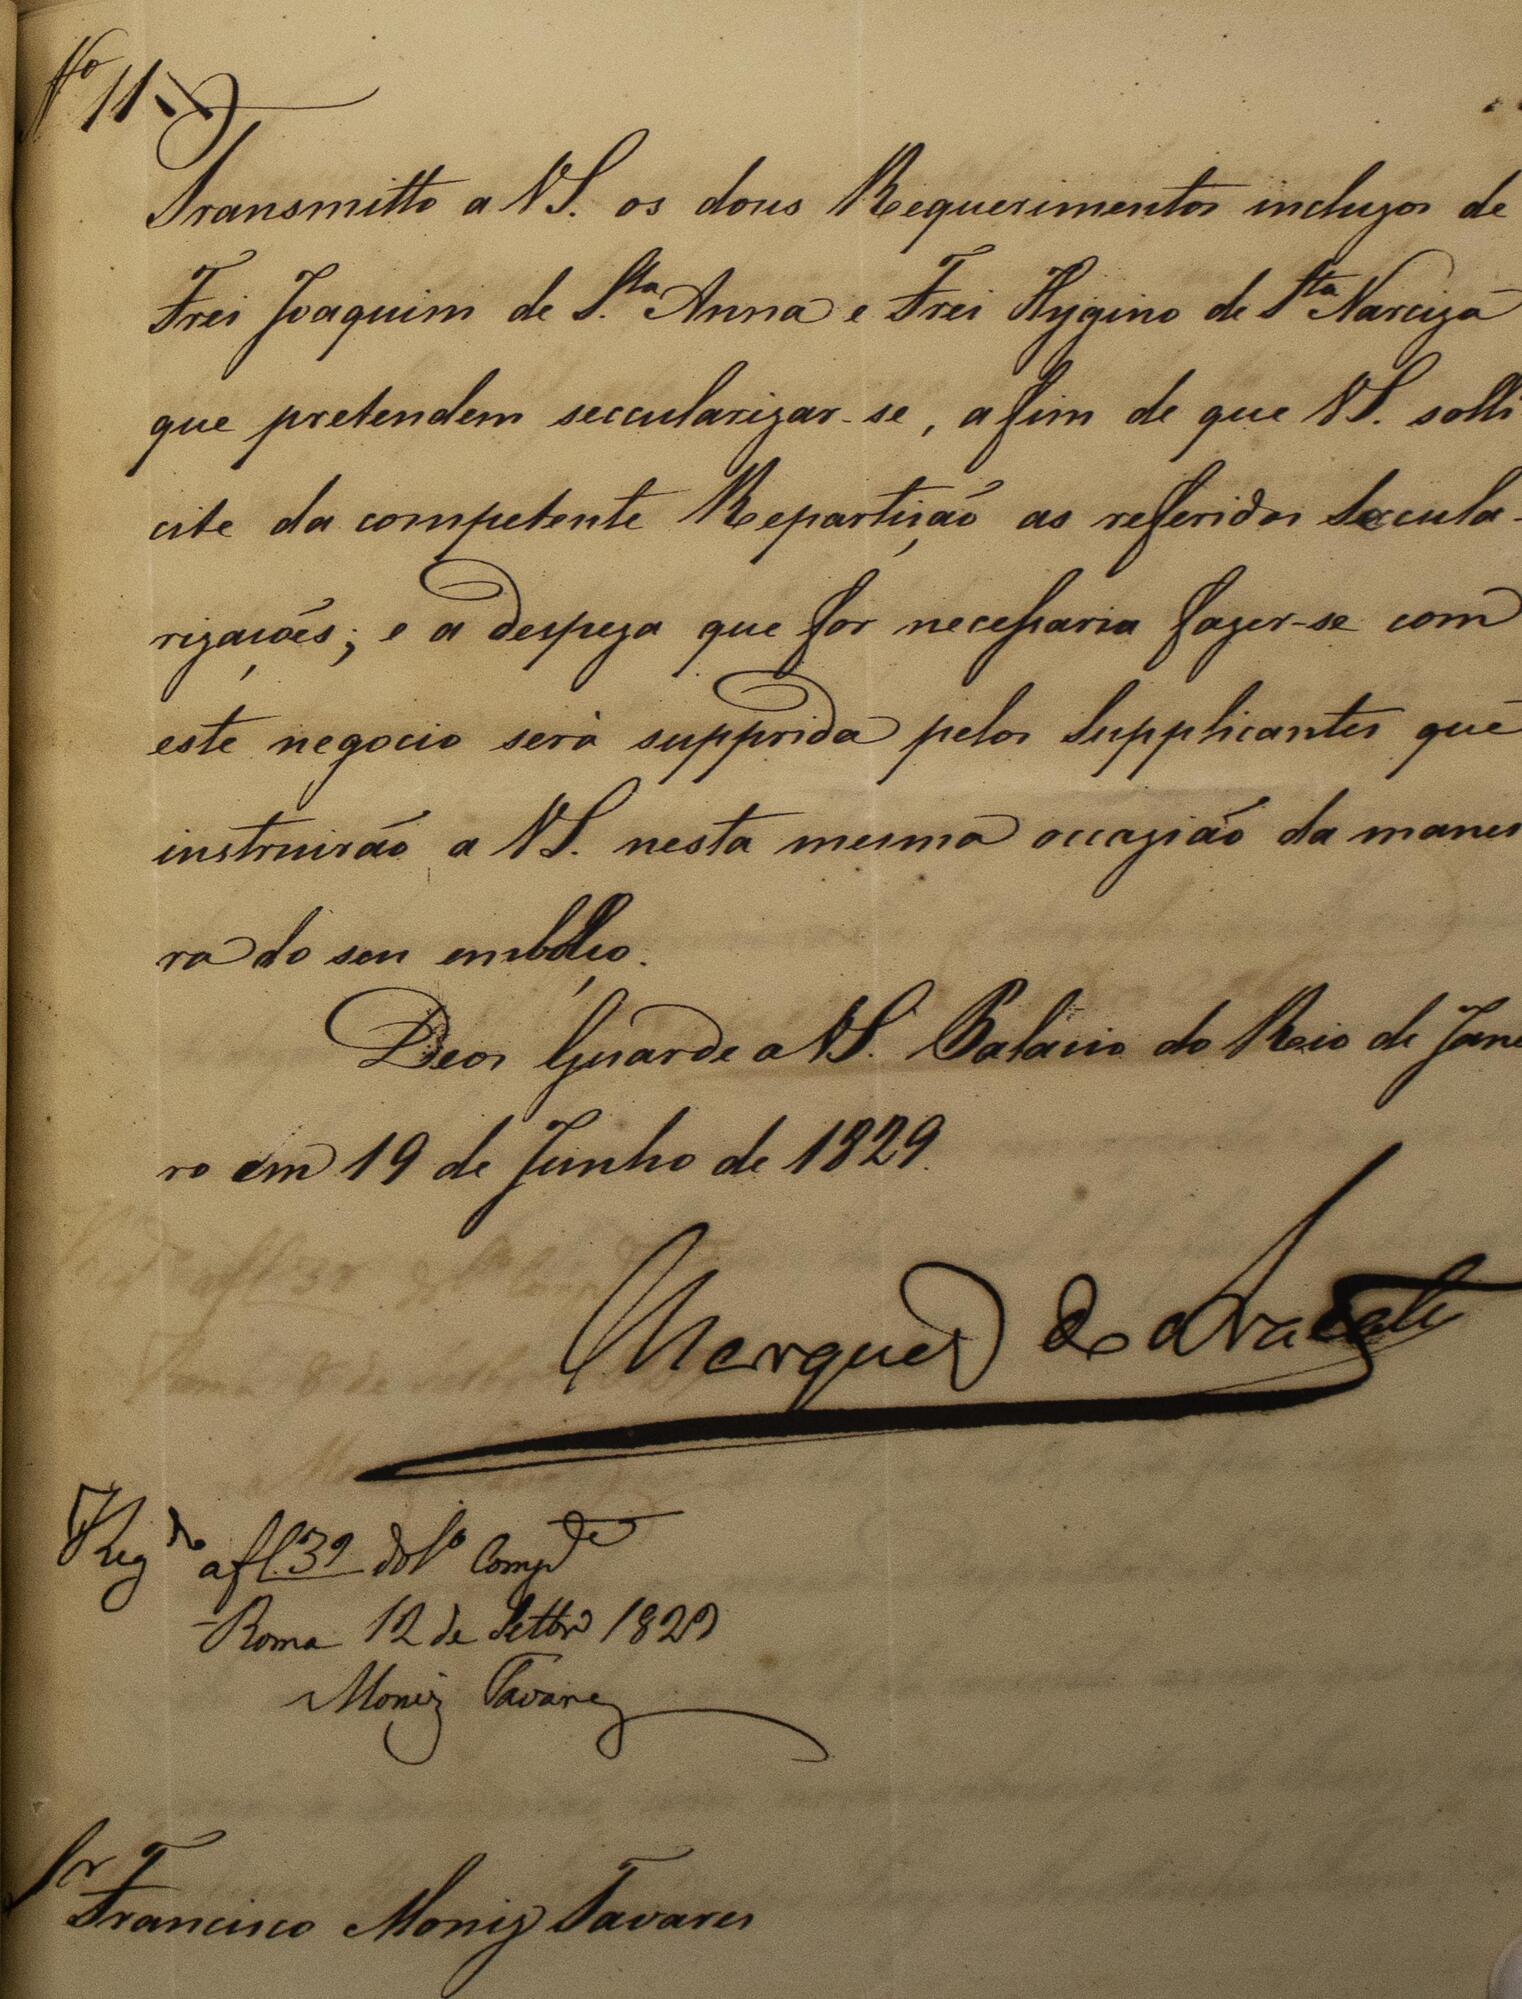 Nº 11
Transmitto a VS. os dous Requerimentos incluzos de
Frei Joaquim de S.ta Anna e Frei Hygino de Sta Narciza
que pretendem seccularizar-se, afim de que VS. solli
cite da competente Repartição as referidas Seccula-
rizações; e a despeza que for necessaria fazer-se com
este negocio será supprida pelos Supplicantes que
instruirão a VS. nesta mesma occazião da manei
ra do seu embolço.
Deos Guarde a VS. Palacio do Rio de Janei
ro em 19 de Junho de 1829.
Marquez do Aracaty
Regdo a fl. 39 do Lo Compde
Roma 12 de Settbro 1829
Moniz Tavares
Sr
Francisco Moniz Tavares